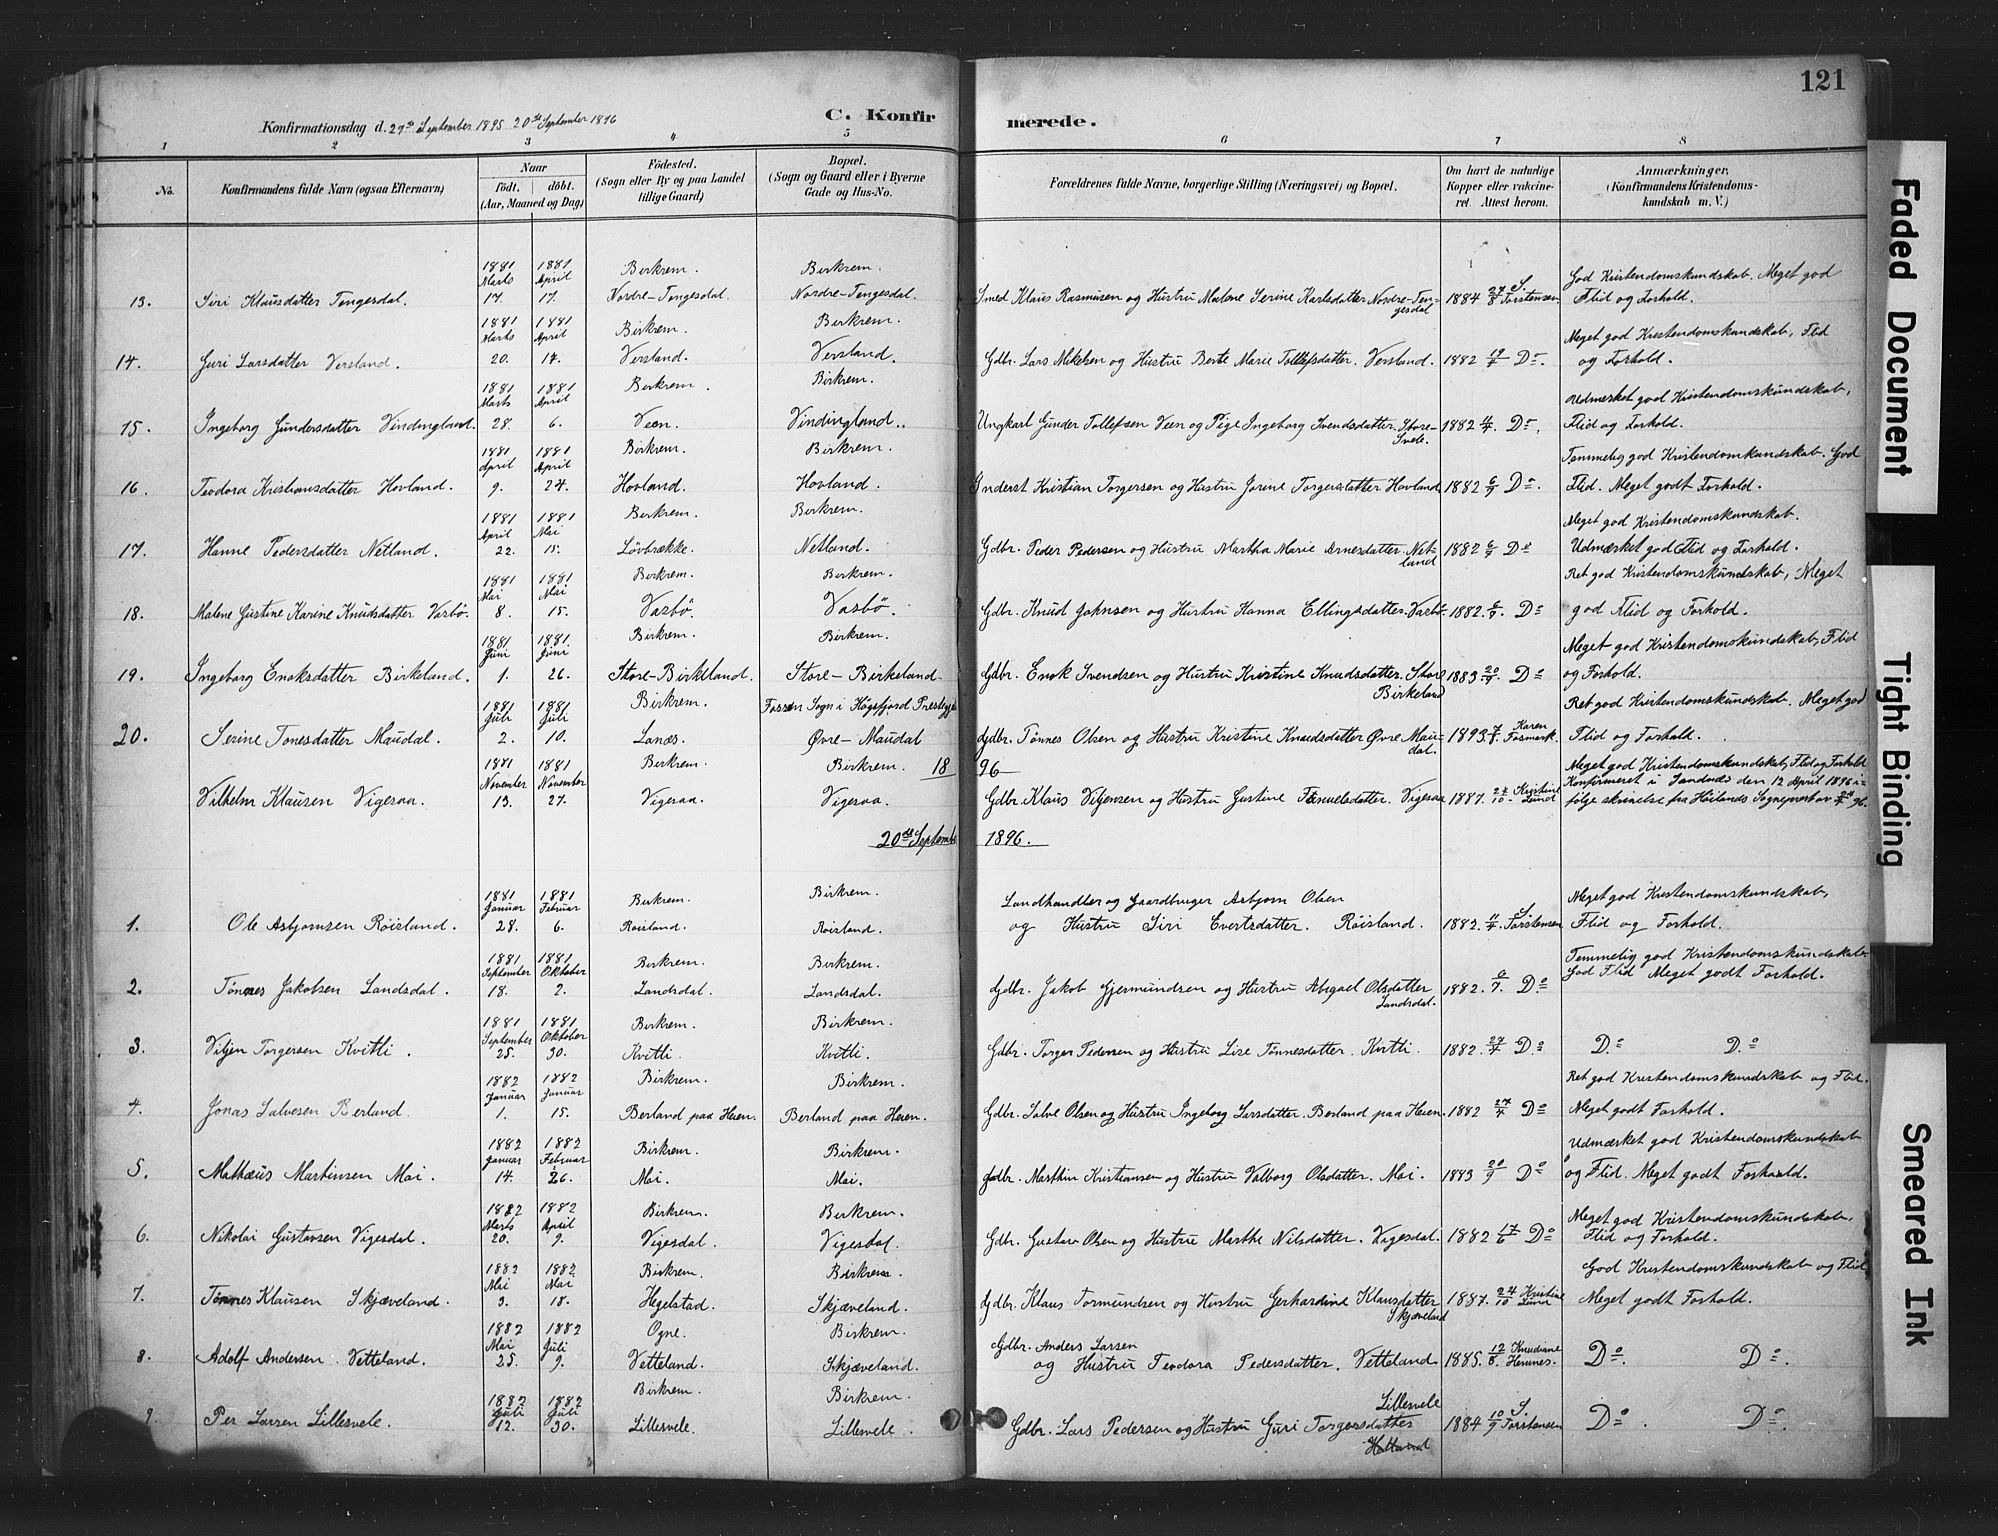 121
Konfirmationsdag d. 29de September 1895 20de September 1896
C. Konfir merede.
1 2 3 4 5 6 7 8
No.
Konfirmandens fulde Navn (ogsaa Efternavn)
Naar
født. døbt.
(Aar, Maaned og Dag)
Födested.
(Sogn eller By og paa Landet
tillige Gaard)
Bopæl.
(Sogn og Gaard eller i Byerne
Gade og Hus-No.
Forældrenes fulde Navne, borgerlige Stilling (Næringsvei) og Bopæl.
Om havt de naturlige
Kopper eller vakcine-
ret. Attest herom.
Anmærkninger.
(Konfirmandens Kristendoms-
kundskab m. V.)
1881 Marts 1881 April Birkrem. Birkrem. God Kristendomskundskab. Meget god
13. Siri Klausdatter Tengesdal. 17. 17. Nordre-Tengesdal. Nordre-Tengesdal. Smed Klaus Rasmusen og Hustru Malene Serine Karlsdatter Nordre-Tengesdal 1884 27/8 S. Torstensen Flid og Forhold.
1881 Marts 1881 April Birkrem. Birkrem. Meget god Kristendomskundskab, Flid
14. Guri Larsdatter Versland. 20. 14. Versland. Versland. Gdbr. Lars Mikelsen og Hustru Berte Marie Tollefsdatter. Versland. 1882 19/7 Do. og Forhold.
1881 Marts 1881 April Birkrem. Birkrem. Udmærket god Kristendomskundskab,
15. Ingeborg Gundersdatter Vindingland. 28. 6. Veen. Vindingland. Ungkarl Gunder Tollefsen Veen og Pige Ingeborg Svendsdatter. Store-Svele. 1882 4/7. Do. Flid og Forhold.
1881 April 1881 April Birkrem. Birkrem. Temmelig god Kristendomskundskab. God
16. Teodora Kristiansdatter Hovland. 9. 24. Hovland. Hovland. Inderst Kristian Torgersen og Hustru Jorine Torgersdatter Hovland 1882 6/7 Do. Flid. Meget godt Forhold.
1881 April 1881 Mai Birkrem. Birkrem. Meget god Kristendomskundskab.
17. Hanne Pedersdatter Netland. 22. 15. Løvbrække. Netland. Gdbr. Peder Pedersen og Hustru Martha Marie Arnesdatter. Netland 1882 6/7 Do Udmærket god Flid og Forhold.
1881 Mai 1881 Mai Birkrem. Birkrem. Ret god Kristendomskundskab, Meget
18. Malene Gustine Karine Knudsdatter Vasbø. 8. 15. Vasbø. Vasbø. Gdbr. Knud Johnsen og Hustru Hanna Ellingsdatter. Vasbø 1882. 6/7. Do god Flid og Forhold.
1881 Juni 1881. Juni Birkrem. Birkrem. Meget god Kristendomskundskab, Flid
19. Ingeborg Enoksdatter Birkeland. 1. 26. Store-Birkeland. Store-Birkeland. Gdbr. Enok Svendsen og Hustru Kristine Knudsdatter. Store Birkeland 1883 20/9. Do og Forhold.
1881 Juli 1881 Juli Birkrem. Fossan Sogn i Høgsfjord Prestegj. Ret god Kristendomskundskab. Meget god
20. Serine Tonesdatter Maudal. 2. 10. Lanæs. Øvre-Maudal Gdbr. Tønnes Olsen og Hustru Kristine Knudsdatter Øvre Maudal. 1893 7/8. Karen Fosmark. Flid og Forhold.
1881 November 1881 November Birkrem. Birkrem. 1896 Meget god Kristendomskundskab, Flid og Forhold
Konfirmeret i Sandnes den 12 April 1896 i-
Vilhelm Klausen Vigesaa. 13. 27. Vigesaa. Vigesaa. Gdbr. Klaus Viljensen og Hustru Gustine Tønnelsdatter. Vigesaa 1887. 24/10. Kristine Lund følge skrivelse fra Høilands Sogneprest av 24/4 96.
20de Septemb 1896.
1881 Januar 1881 Februar Birkrem. Birkrem. Landhandler og Gaardbruger Asbjørn Olsen Meget god Kristendomskundskab,
1. Ole Asbjørnsen Røisland. 28. 6. Røisland. Røisland. og Hustru Siri Evertsdatter. Røisland. 1882. 11/4. S. Torstensen Flid og Forhold.
1881 September 1881 Oktober Birkrem. Birkrem. Temmelig god Kristendomskundskab
2. Tønnes Jakobsen Landsdal. 18. 2. Landsdal. Landsdal. Gdbr. Jakob Gjermundsen og Hustru Abigael Olsdatter Landsdal. 1882. 6/7. Do God Flid Meget godt Forhold.
1881 September 1881 Oktober Birkrem. Birkrem.
3. Viljen Torgersen Kvitli. 25. 30. Kvitli. Kvitli. Gdbr. Torger Pedersen og Hustru Lise Tønnesdatter. Kvitli. 1882. 27/7 Do Do Do
1882 Januar 1882 Januar Birkrem. Birkrem. Ret god Kristendomskundskab og Flid.
4. Jonas Salvesen Berland. 1. 15. Berland paa Heien. Berland paa Heien. Gdbr. Salve Olsen og Hustru Ingeborg Larsdatter. Berland paa Heien. 1882 27/4 Do Meget godt Forhold.
1882 Januar 1882 Februar Birkrem. Birkrem. Udmærket god Kristendomskundskab
5. Mathæus Martinsen Moi. 14. 26. Moi. Moi. Gdbr. Marthin Kristiansen og Hustru Valborg Olsdatter. Moi. 1883 20/9 Do og Flid. Meget godt Forhold.
1882 Marts 1882 April Birkrem. Birkrem. Meget god Kristendomskundskab,
6. Nikolai Gustavsen Vigesdal. 20. 9. Vigesdal. Vigesdal. Gdbr. Gustav Olsen og Hustru Marthe Nilsdatter. Vigesdal. 1882 17/6 Do Flid og Forhold.
1882 Mai 1882 Mai Birkrem. Birkrem. God Kristendomskundskab og Flid
7. Tønnes Klausen Skjæveland. 3. 18. Hegelstad. Skjæveland. Gdbr. Klaus Tormundsen og Hustru Gerhardine Klausdatter Skjæveland 1887. 24/10 Kristine Lund Meget godt Forhold.
1882 Mai 1882 Juli Ogne. Birkrem. Gdbr. Anders Larsen
8. Adolf Andersen Vetteland. 25. 9. Vetteland. Skjæveland. og Hustru Teodora Pedersdatter. Vetteland 1885. 12/8. Knudiane Hennes. Do. Do.
1882 Juli 1882 Juli Birkrem. Birkrem. Lillesvele
9. Per Larsen Lillesvele. 12. 30. Lillesvele. Lillesvele. Gdbr. Lars Pedersen og Hustru Guri Torgersdatter 1884 10/9 S. Torstensen Do. Do.
Faded Document
Tight Binding
Smeared Ink